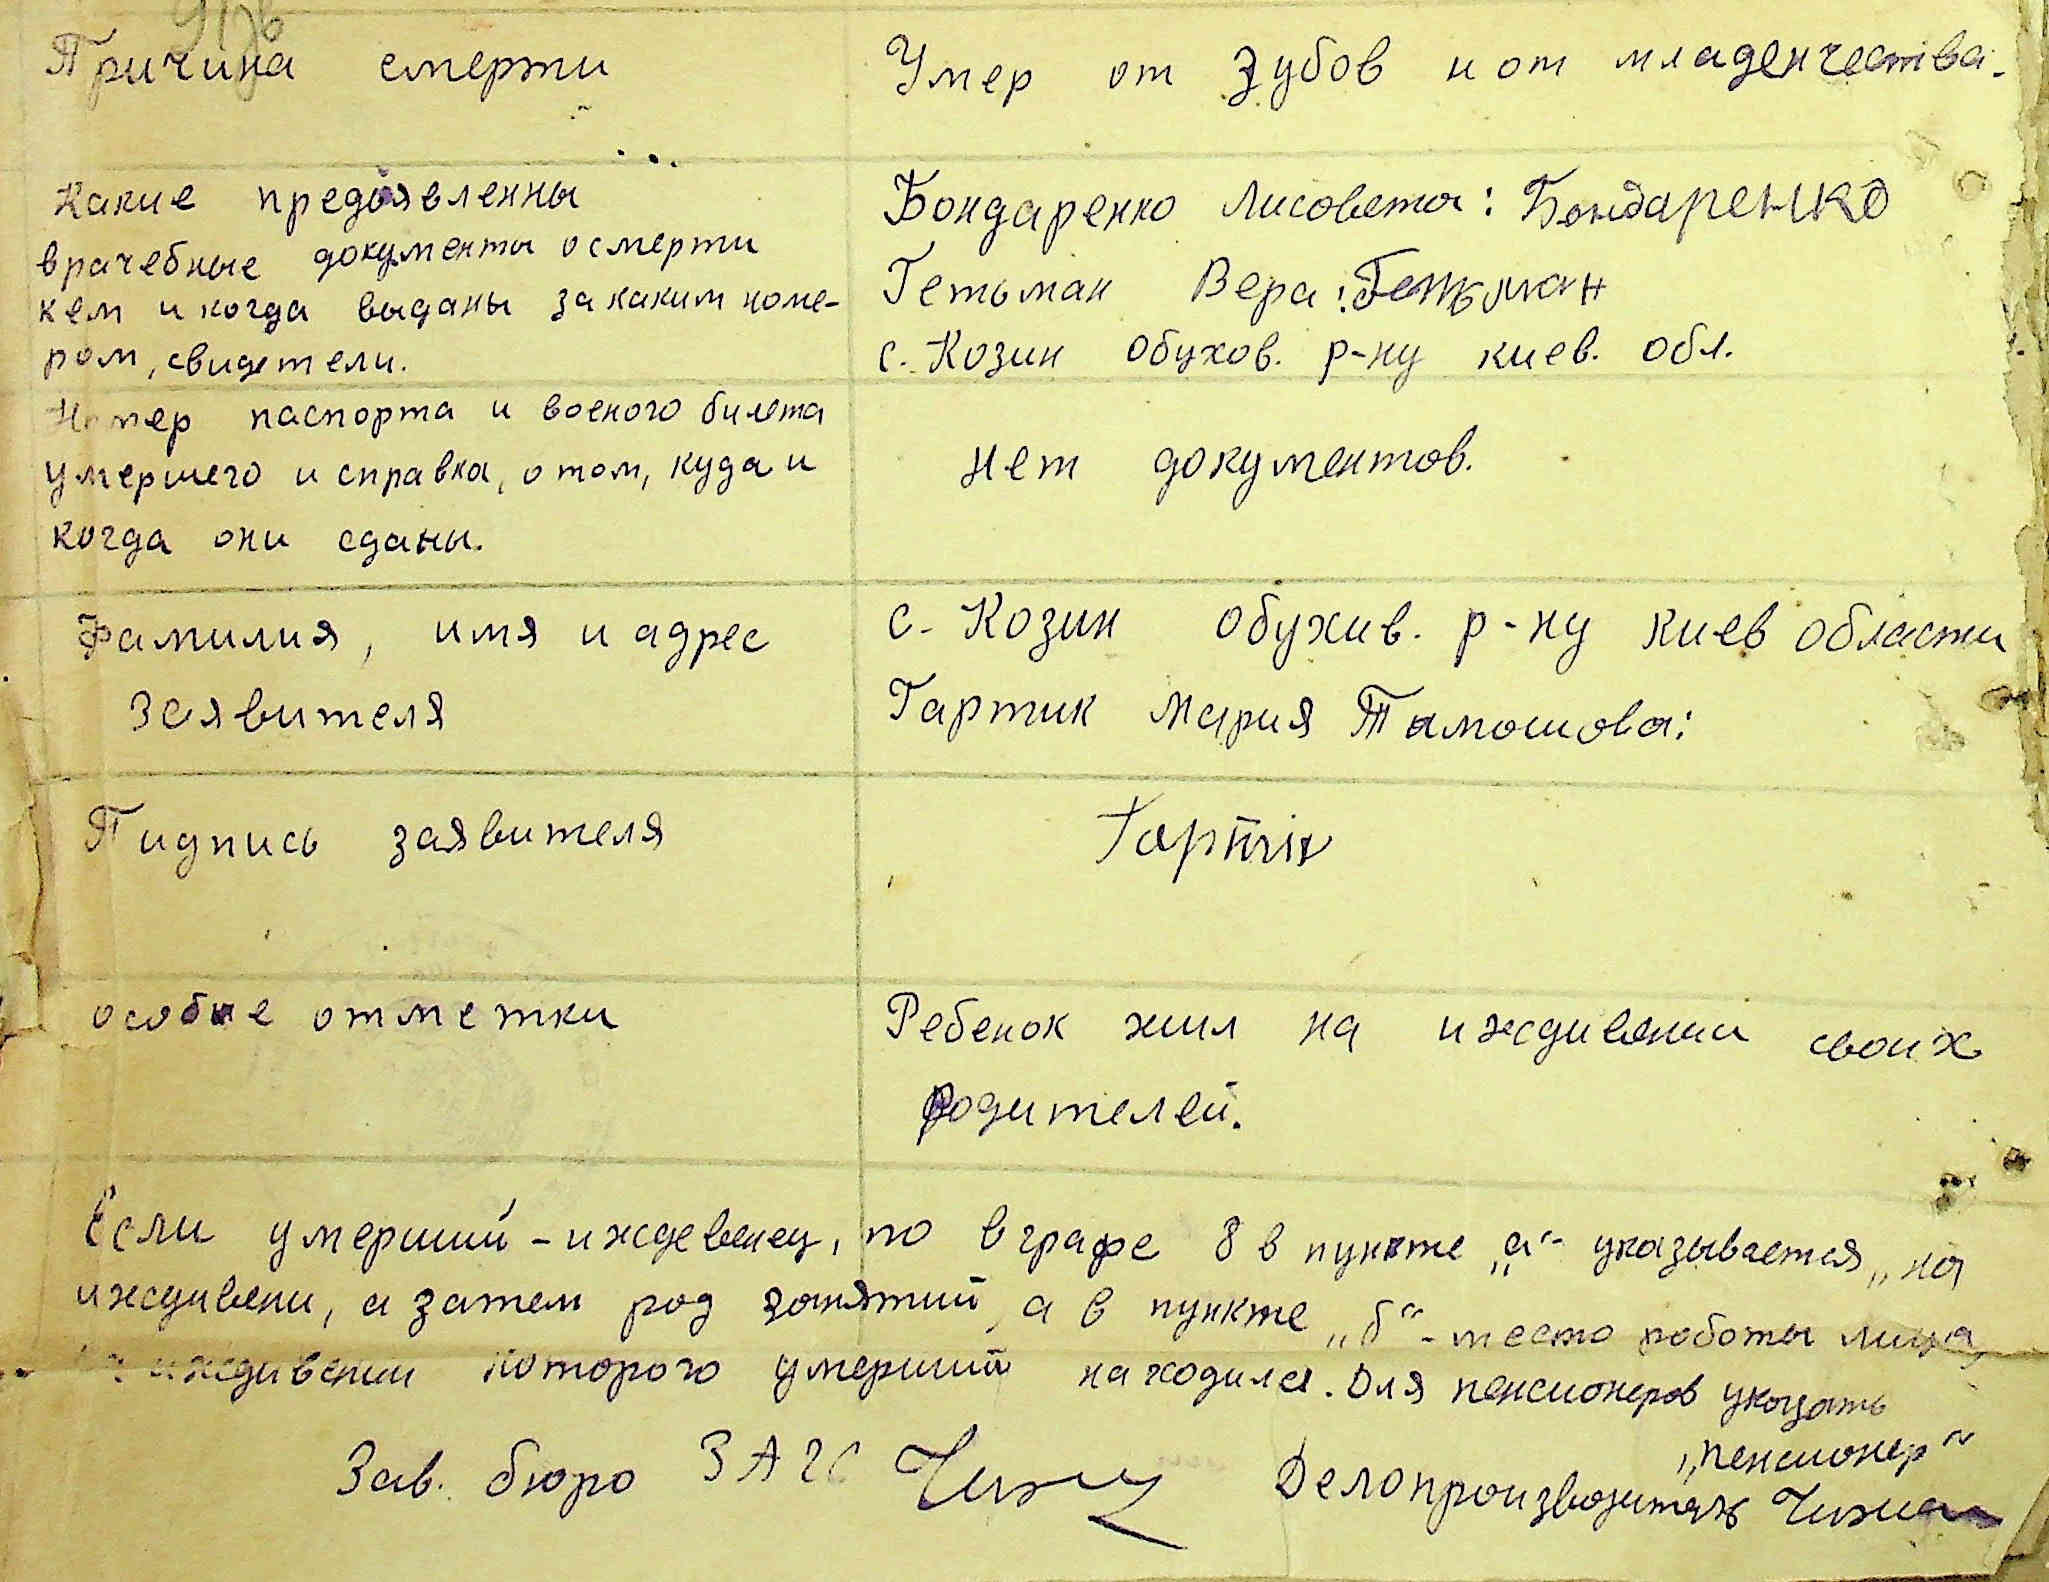 Причина смерти
Умер от зубов и от младенчества.
Какие предъявленны
врачебные документы о смерти
кем и когда выданы за каким номе-
ром, свидетели.
Бондаренко Лисовета: Бондаренко
Гетьман Вера: Гетьман
с. Козин обухов. р-ну киев. обл.
Номер паспорта и военого билета
умершего и справка, о том, куда и
когда они сданы.
нет документов.
Фамилия, имя и адрес
заявителя
с. Козин обухив. р-ну киев области
Гартик Мария Тамошова:
Пидпись заявителя
Гартік
особые отметки
Ребенок жил на иждивении своих
родителей.
Если умерший - иждевенец, то в графе 8 в пункте „а“ указывается „на
иждивени, а затем род занятий, а в пункте „б“ - место работы лица,
иждивении которого умерший находился. Для пенсионеров указать
„пенсионер“
Зав. бюро ЗАГС
Делопроизводитель